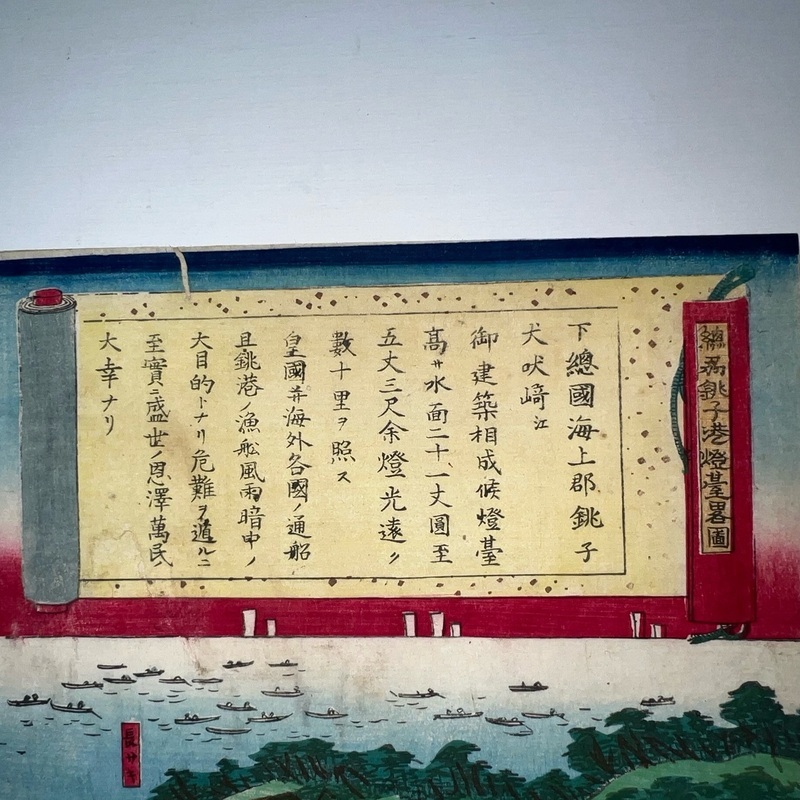 總州銚子港燈臺畧圖
下總國海上郡銚子
犬吠﨑江
御建築相成候燈臺
高サ水面二十一丈圓至
五丈三尺余燈光遠ク
數十里ヲ照ス
皇國并海外各國ノ通船
且銚港ノ漁船風雨暗中ノ
大目的トナリ危難ヲ遁ルニ
至實ニ盛世ノ恩澤萬民
大幸ナリ
長サキ